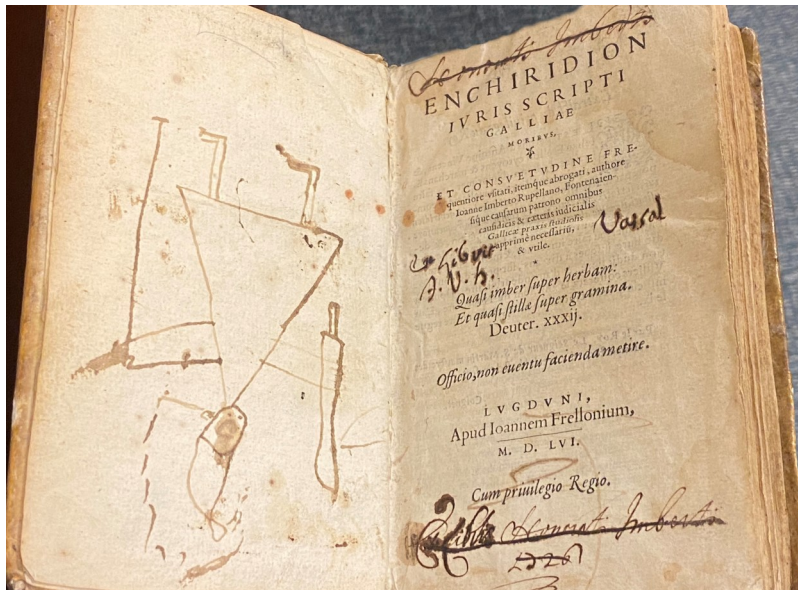 Honorati Imberti
ENCHIRIDION
IVRIS SCRIPTI
GALLIAE
MORIBVS,
ET CONSVETVDINE FRE-
quentiore vsitati, itemque abrogati, authore
Ioanne Imberto Rupellano, Fontenaien-
sique causarum patrono omnibus
causidicis & cæteris iudicialis
Gallicæ praxis studiosis
apprimè necessariũ,
& vtile.
Vassal
Ex Libris
J. V. h.
Quasi imber super herbam:
Et quasi stillæ super gramina.
Deuter. xxxij.
Officio, non euentu facienda metire.
LVGDVNI,
Apud Ioannem Frellonium,
M. D. LVI.
Cum priuilegio Regio.
Honorati Imberti